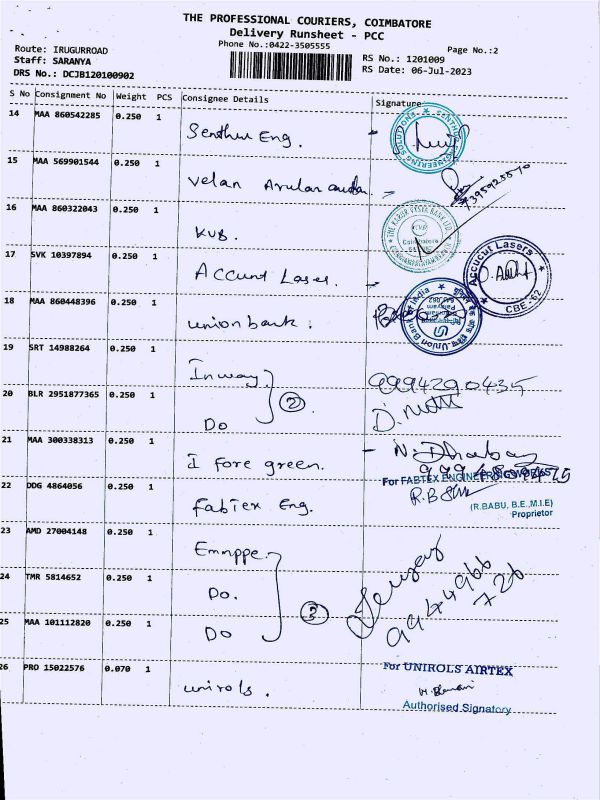 THE PROFESSIONAL COURIERS, COIMBATORE
Delivery Runsheet - PCC
Phone No.:0422-3505555
Page No.:2
Route: IRUGURROAD
Staff: SARANYA
DRS No.: DCJB120100902
RS No.: 1201009
RS Date: 06-Jul-2023
S No Consignment No Weight PCS Consignee Details Signature
14 MAA 860542285 0.250 1 Senthur Eng.
15 MAA 569901544 0.250 1 Velan
16 MAA 860322043 0.250 1 KVB.
THE KARUR VYSYA BANK LTD
17 SVK 10397894 0.250 1 Accund Laser.
Accucut Lasers
CBE-62
18 MAA 860448396 0.250 1 union bank.
Union Bank of India
19 SRT 14988264 0.250 1 Inway 9994290435
20 BLR 2951877365 0.250 1 Do 2
21 MAA 300338313 0.250 1 I fore green.
22 DDG 4864056 0.250 1 Fabtex Eng.
For FABTEX ENGINEERING WORKS
(R.BABU, B.E.,M.I.E)
Proprietor
23 AMD 27004148 0.250 1
24 TMR 5814652 0.250 1 Do.
25 MAA 101112820 0.250 1 Do
9944966
726
26 PRO 15022576 0.070 1 unirols.
For UNIROLS AIRTEX
Authorised Signatory